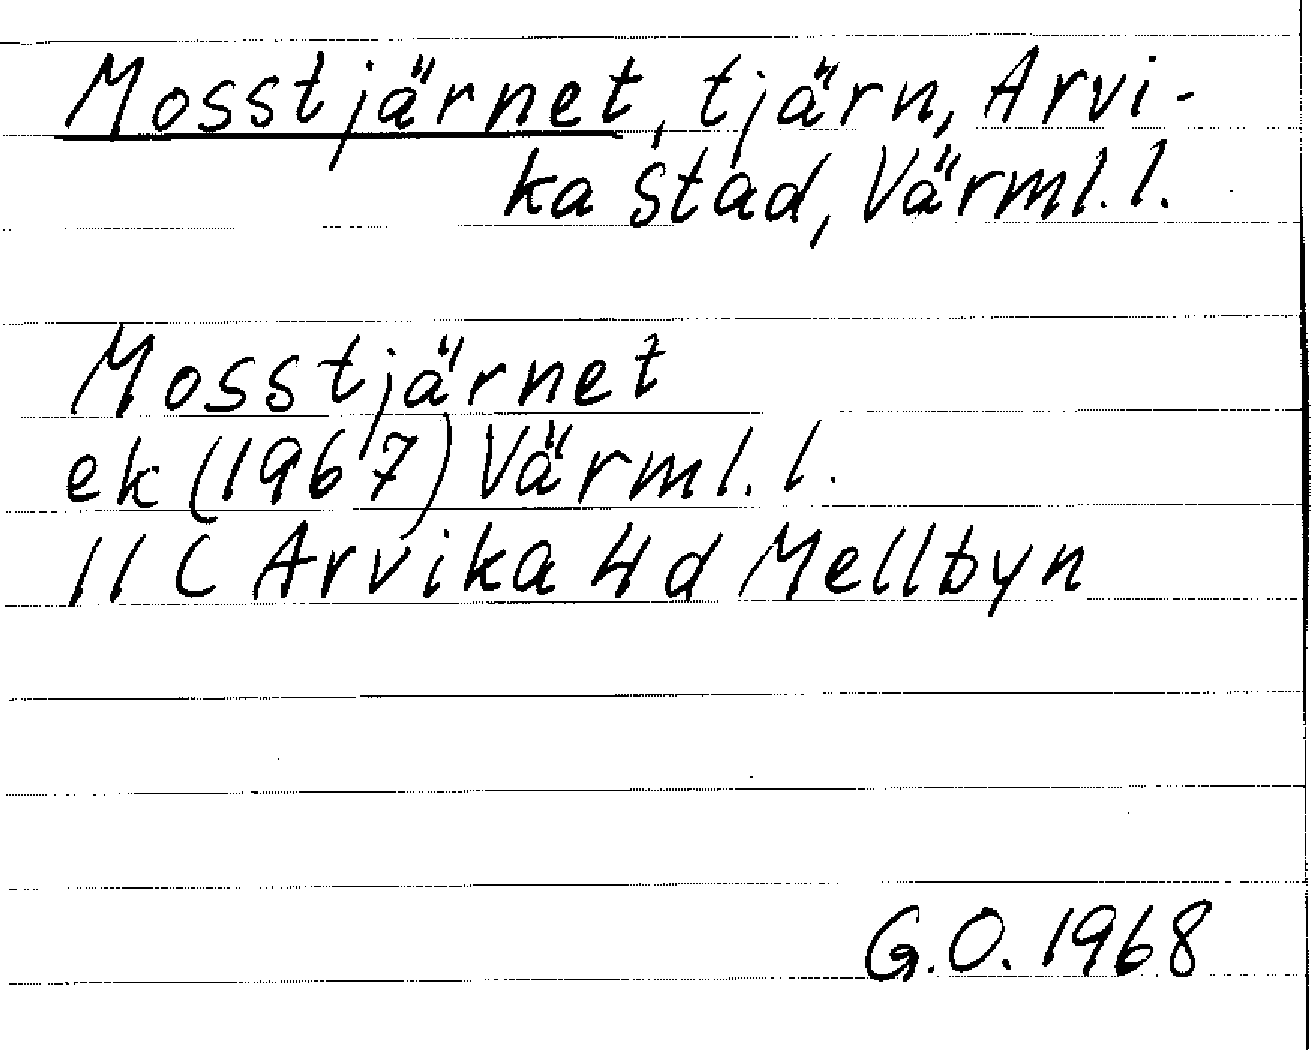 Mosstjärnet, tjärn, Arvi-
ka stad, Värml. l.
Mosstjärnet
ek (1967) Värml. l.
11 C Arvika 4d Mellbyn
G.O. 1968